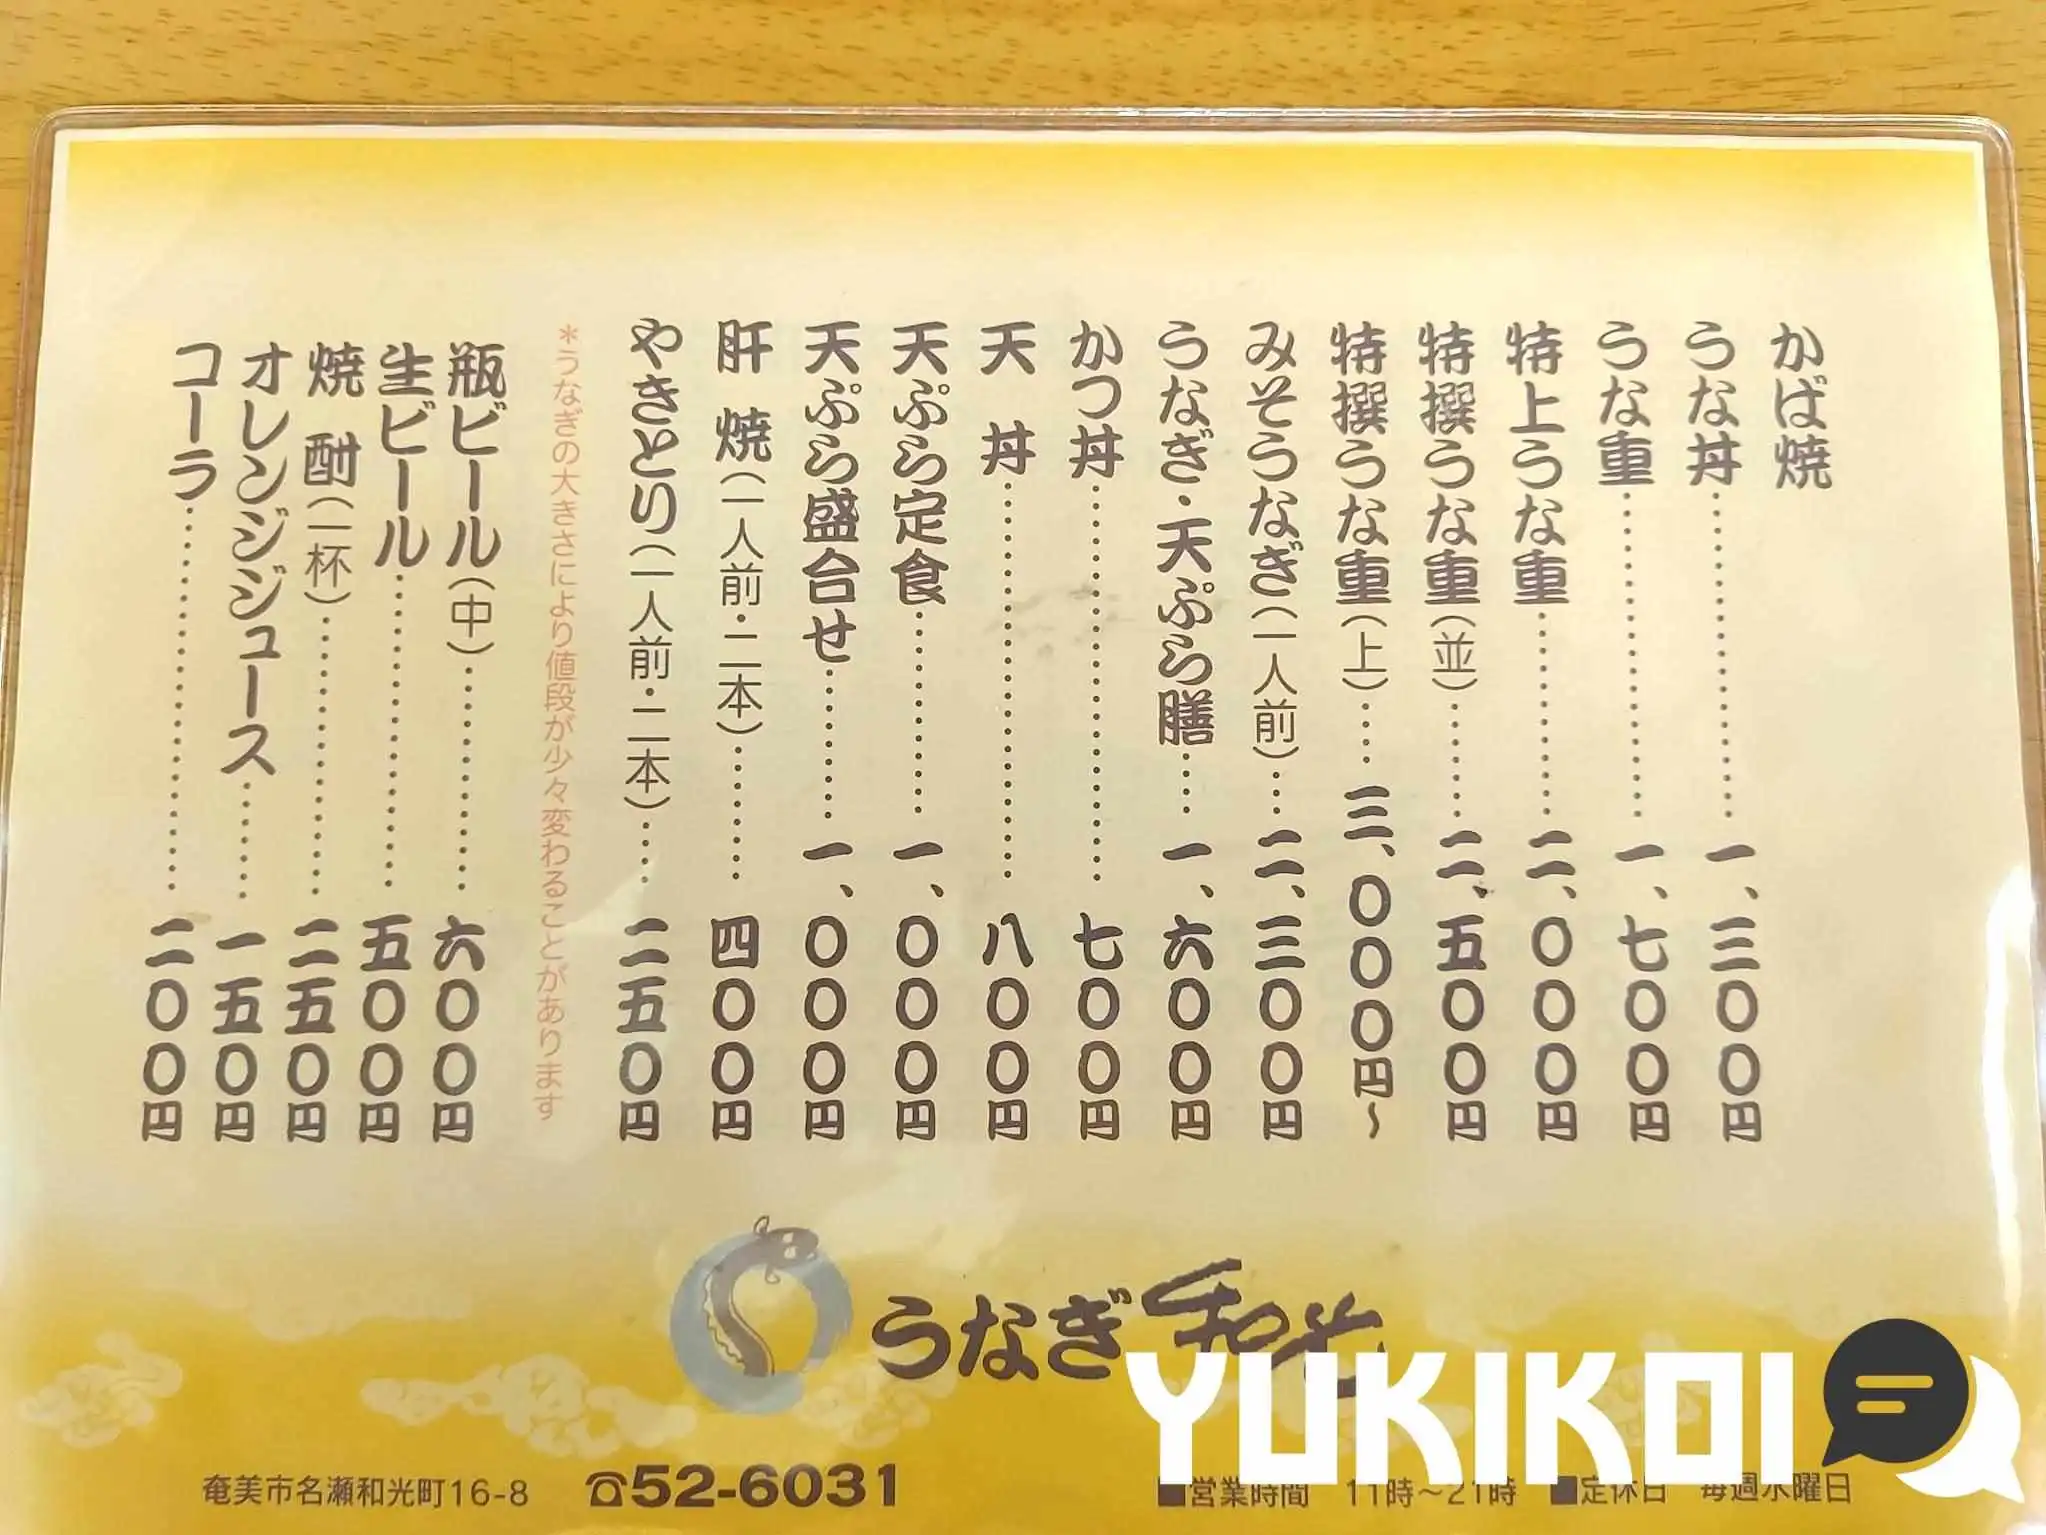 かば焼
うな丼…………一、三〇〇円
うな重…………一、七〇〇円
特上うな重…………二、〇〇〇円
特撰うな重(並)…………二、五〇〇円
特撰うな重(上)……三、〇〇〇円～
みそうなぎ(一人前)…二、三〇〇円
うなぎ・天ぷら膳……一、六〇〇円
かつ丼…………七〇〇円
天丼…………八〇〇円
天ぷら定食…………一、〇〇〇円
天ぷら盛合せ…………一、〇〇〇円
肝焼(一人前・二本)…………四〇〇円
やきとり(一人前・二本)……二五〇円
*うなぎの大きさにより値段が少々変わることがあります
瓶ビール(中)…………六〇〇円
生ビール…………五〇〇円
焼酎(一杯)…………二五〇円
オレンジジュース…………一五〇円
コーラ…………二〇〇円
うなぎ和光
YUKIKOI
奄美市名瀬和光町16-8 ☎52-6031 ■営業時間 11時～21時 ■定休日 毎週水曜日